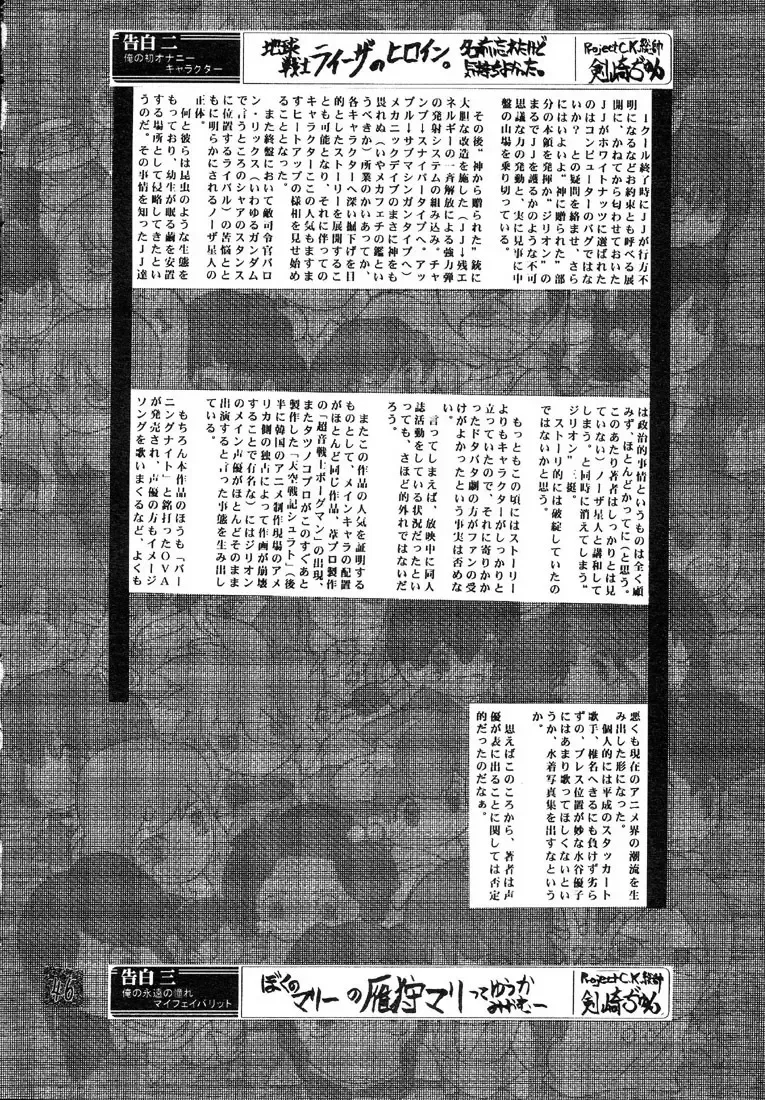 告白 二
俺の初オナニー
キャラクター
地球
戦士
ライーザのヒロイン。
名前忘れたけど
気持ちよかった。
Project C.K. 総帥
剣崎
１クール終了時にＪＪが行方不
明になるなどお約束とも呼べる展
開に、かねてから匂わせておいた
ＪＪがホワイトナッツに選ばれた
のはコンピューターのバグではな
いか？　との疑問を絡ませ、さら
にはいよいよ“神に贈られた”部
分の本領を発揮か“ジリオン”の
まるでＪＪを護るかのような不可
思議な力の発動と、実に見事に中
盤の山場を乗り切っている。
その後“神から贈られた”銃に
大胆な改造を施した（ＪＪ→残エ
ネルギーの一斉解放による強力弾
の発射システムの組み込み。チャ
ンプ→スナイパータイプへ。アッ
プル→サブマシンガンタイプへ）
メカニックデイブのまさに神をも
畏れぬ（いやメカフェチの鑑とい
うべきか）所業のかいあってか、
各キャラクターへ深い掘下げを目
的としたストーリーを展開するこ
とも可能となり、それに伴っての
キャラクター人気もますま
すヒートアップの様相を見せ始め
ることとなった。
また終盤において敵司令官バロ
ン・リックス（いわゆるガンダム
で言うところのシャアのスタンス
に位置するライバル）の苦悩とと
もに明らかにされるノーザ星人の
正体。
何と彼らは昆虫のような生態を
もっており、幼生が眠る繭を安置
する場所として侵略してきたとい
うのだ。その事情を知ったＪＪ達
は政治的事情というものは全く顧
みず、ほとんどかってに（と思う。
このあたり著者はしっかりとは見
ていない）ノーザ星人と講和して
しまう。と同時に消えてしまう“
ジリオン”三挺。
ストーリ的には破綻していたの
ではないかと思う。
もっともこの頃にはストーリー
よりもキャラクターがしっかりと
立っていたので、それに寄りかか
ったドタバタ劇の方がファンの受
けがよかったという事実は否めな
い。
言ってしまえば、放映中に同人
誌活動をしている状況だったとい
っても、さほど的外れではないだ
ろう。
またこの作品の人気を証明する
ものとして、メインキャラの配置
がほとんど同じ作品、葦プロ製作
の「超音戦士ボーグマン」の出現、
またタツノコプロがこのすぐあと
製作した「天空戦記シュラト」（後
半に韓国のアニメ制作現場のアメ
リカ側の独占によって作画が崩壊
することで有名な）にはジリオン
のメイン声優がほとんどそのまま
出演すると言った事態を生み出し
ている。
もちろん本作品のほうも「バー
ニングナイト」と銘打ったＯＶＡ
が発売され、声優の方もイメージ
ソングを歌いまくるなど、よくも
悪くも現在のアニメ界の潮流を生
み出した形になった。
個人的には平成のスタッカート
歌手、椎名へきるにも負けず劣ら
ずの、ブレス位置が妙な水谷優子
にはあまり歌ってほしくないとい
うか、水着写真集を出すなという
か。
思えばこのころから、著者は声
優が表に出ることに関しては否定
的だったのだなぁ。
46
告白 三
俺の永遠の憧れ
マイフェイバリット
ぼくの
マリーの雁狩マリってゆうか
みかむー
Project C.K. 総帥
剣崎